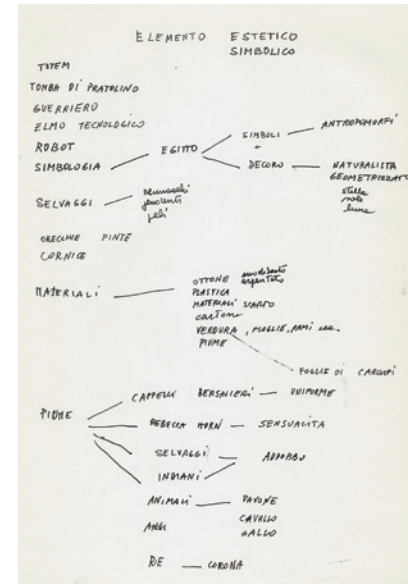 ELEMENTO ESTETICO
SIMBOLICO
TOTEM
TOMBA DI PRATOLINO
GUERRIERO
ELMO TECNOLOGICO
ROBOT
SIMBOLOGIA — EGITTO
SIMBOLI — ANTROPOMORFI
DECORO — NATURALISTA
GEOMETRIZZATO
stella
sole
luna
SELVAGGI —
pendenti
peli
ORECCHIE FINTE
CORNICE
MATERIALI —
OTTONE argentato
PLASTICA
MATERIALI SCARTO
cartone
VERDURA, FOGLIE, RAMI ecc.
PIUME
FOGLIE DI CARCIOFI
PIUME
CAPPELLI BERSAGLIERI — UNIFORME
REBECCA HORN — SENSUALITA
SELVAGGI
INDIANI
ADDOBBO
ANIMALI — PAVONE
CAVALLO
GALLO
RE — CORONA